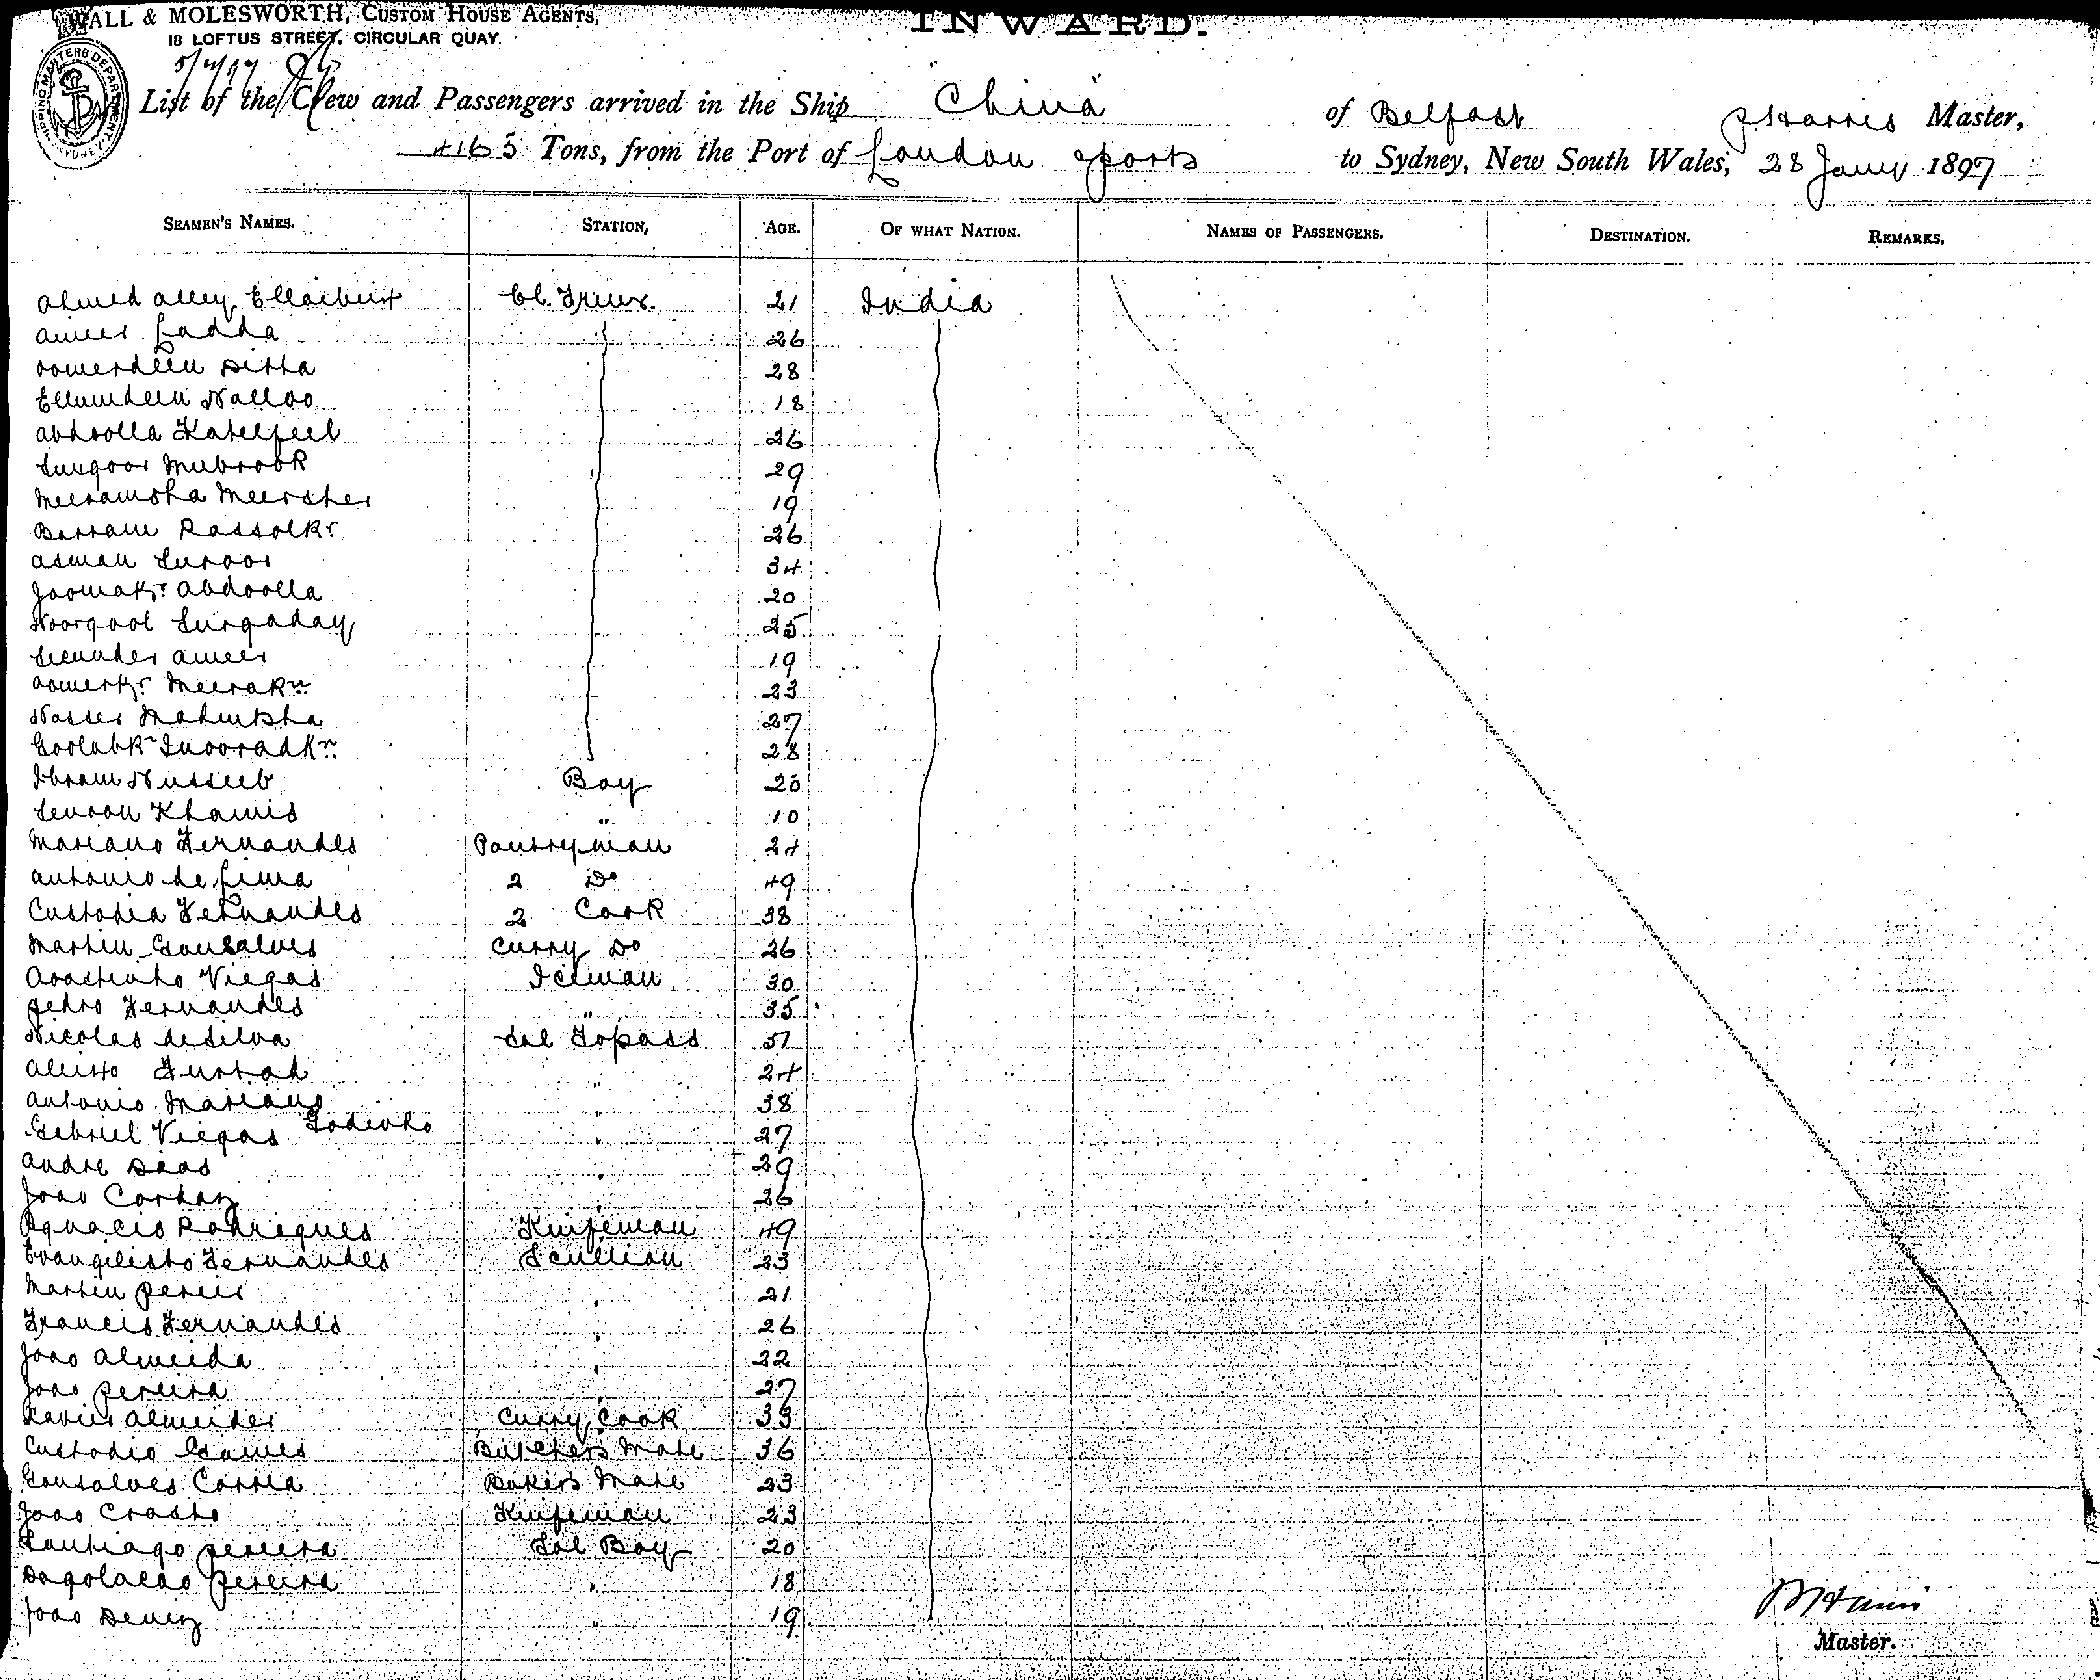 WALL & MOLESWORTH, CUSTOM HOUSE AGENTS,
18 LOFTUS STREET, CIRCULAR QUAY.
INWARD.
List of the Crew and Passengers arrived in the Ship "China" of Belfast P Harris Master,
4165 Tons, from the Port of London & ports to Sydney, New South Wales, 28 Jany 1897
SEAMEN'S NAMES. STATION, AGE. OF WHAT NATION. NAMES OF PASSENGERS. DESTINATION. REMARKS.
Ahmed Alley Ellaibux Cl. Trimr. 21 India
Ameer Ladha 26
Oomerdeen Ditta 28
Ellumdeen Nalloo 18
Abdoolla 26
Sungoor Mubrook 29
Meeramsha Meersher 19
Barram Rassolkr 26
Asman Suroor 34
Joomakr Abdoolla 20
Noorgool Surgaday 25
Secunder Ameer 19
Oomerkr Meerakn 23
Nasser 27
Goolabkn 28
Ibram Nusseeb Boy 20
Senoon Khamis " 10
Mariano Fernandes Pantryman 24
Antonio de Lima 2 Do 49
Custodia Fernandes 2 Cook 38
Martin Gonsalves Curry Do 26
Viegas Iceman 30
Pedro Fernandes " 35
Nicolas deSilva Sal Topass 51
Furtad " 24
Antonio Mariano Godinho " 38
Gabriel Viegas " 27
Andre Dias " 29
Joao Cordoz " 26
Ignacio Rodrigues Knifeman 49
Evangelisto Fernandes Scullion 23
Martin Perei " 21
Francis Fernandes " 26
Joao Almeida " 22
Joao Pereira " 27
Xavier Almeider Curry Cook 33
Custodio Gomes Butchers Mate 36
Gonsalves Correa Bakers Mate 23
Joao Crasto Knifeman 23
Santiago Pereira Sal Boy 20
Pereira " 18
Joao " 19
Master.